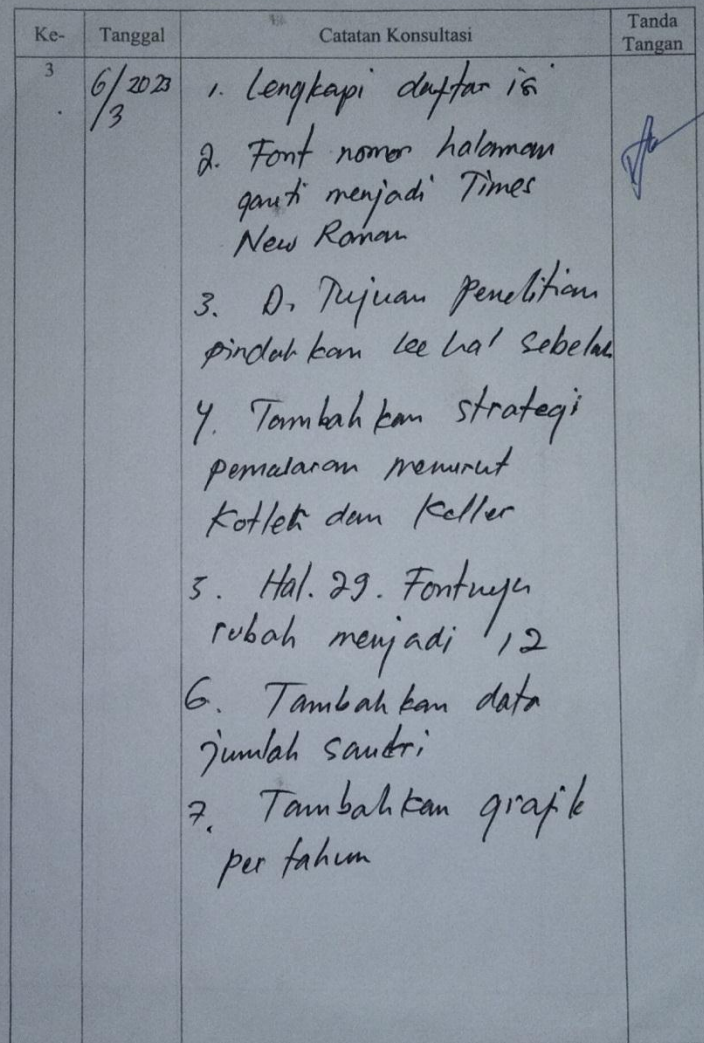 Ke- Tanggal Catatan Konsultasi Tanda Tangan
3 6/3 2023 1. Lengkapi daftar isi
2. Font nomor halaman
ganti menjadi Times
New Roman
3. D. Tujuan Penelitian
pindahkan ke hal sebelah
4. Tambahkan strategi
pemasaran menurut
Kotler dan Keller
5. Hal. 29. Fontnya
rubah menjadi 12
6. Tambahkan data
jumlah santri
7. Tambahkan grafik
per tahun